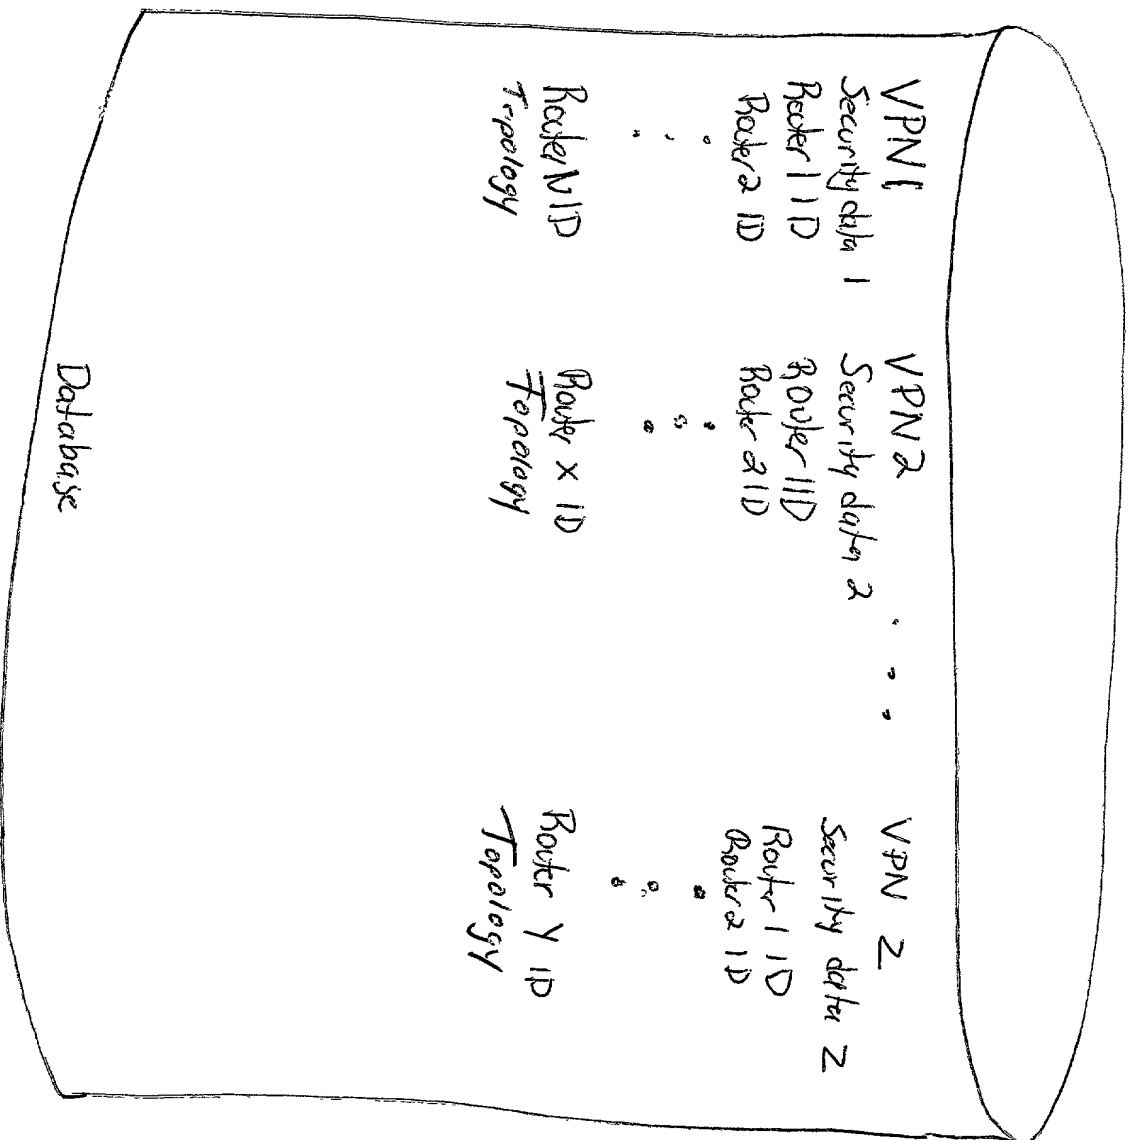 VPN1
Security data 1
Router 1 ID
Router 2 ID
Router N ID
Topology
VPN 2
Security data 2
Router 1 ID
Router 2 ID
Router X ID
Topology
VPN Z
Security data Z
Router 1 ID
Router 2 ID
Router Y ID
Topology
Database